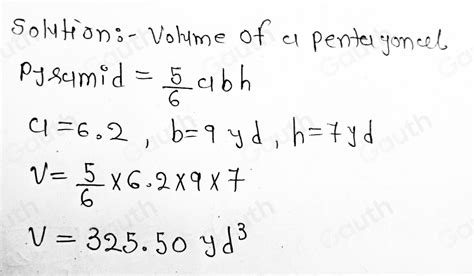 Solution:- Volume of a pentagonal
Pyramid = 5/6 abh
a = 6.2 , b = 9 yd , h = 7 yd
V = 5/6 × 6.2 × 9 × 7
V = 325.50 yd³